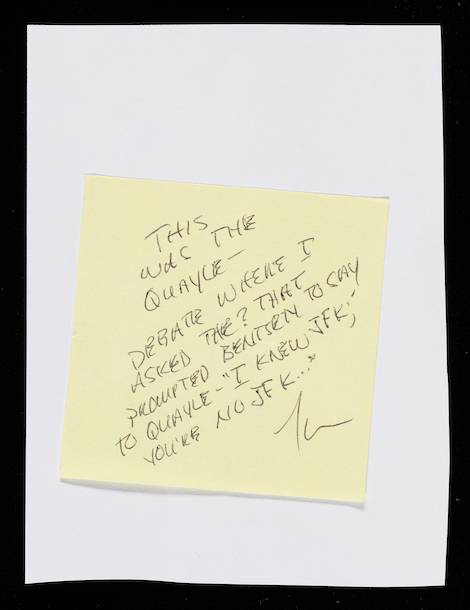 THIS
WAS THE
QUAYLE -
DEBATE WHERE I
ASKED THE ? THAT
PROMPTED BENTSEN TO SAY
TO QUAYLE - "I KNEW JFK,
YOU'RE NO JFK..."